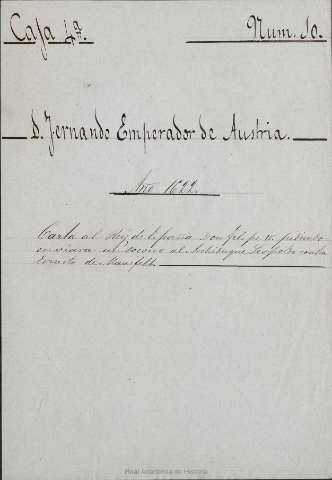 Caja 4ª.
Num. 10.
D. Fernando Emperador de Austria.
Año 1622.
Carta al Rey de España Don Felipe IV. pidiendo
enviara un socorro al Archiduque Leopoldo contra
Ernesto de Mansfelt.
Real Academia de Historia